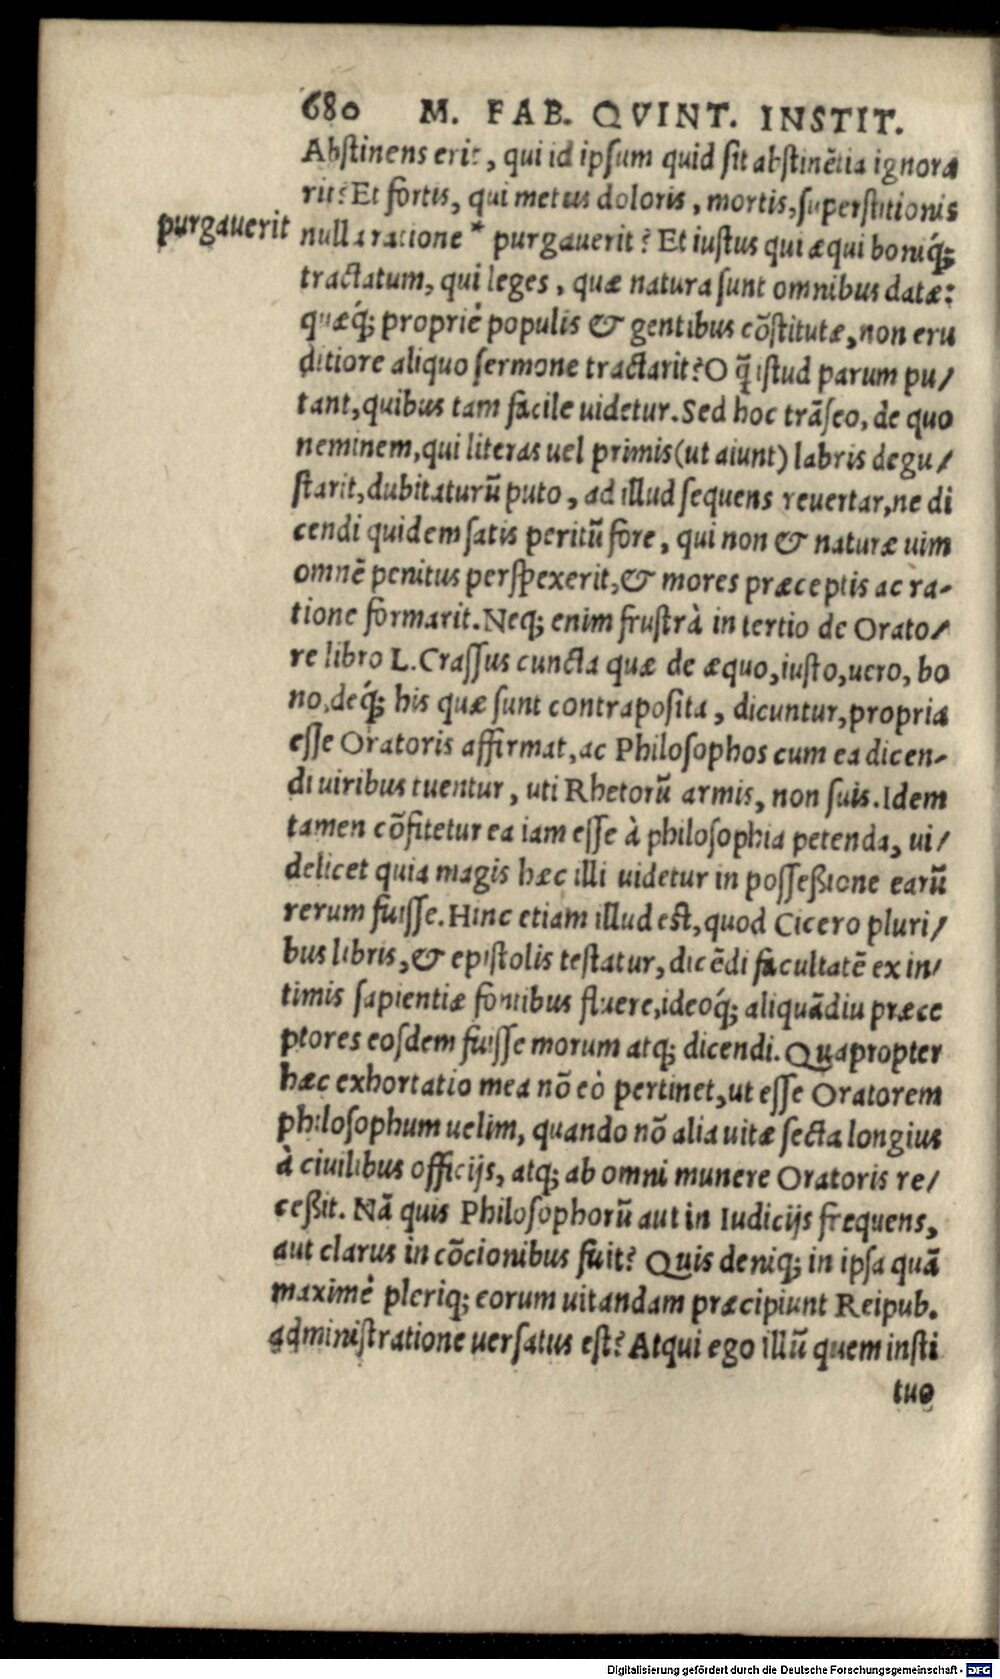 680 M. FAB. QVINT. INSTIT.
Abſtinens erit, qui id ipſum quid ſit abſtinẽtia ignora
rit? Et fortis, qui metus doloris, mortis, ſuperſtitionis
purgauerit
nulla ratione * purgauerit? Et iuſtus qui æqui boniq́;
tractatum, qui leges, quæ natura ſunt omnibus datæ:
quæq́; propriè populis & gentibus cõſtitutæ, non eru
ditiore aliquo ſermone tractarit? O q̃ iſtud parum pu/
tant, quibus tam facile uidetur. Sed hoc trãſeo, de quo
neminem, qui literas uel primis (ut aiunt) labris degu/
ſtarit, dubitaturũ puto, ad illud ſequens reuertar, ne di
cendi quidem ſatis peritũ fore, qui non & naturæ uim
omnẽ penitus perſpexerit, & mores præceptis ac ra-
tione formarit. Neq; enim fruſtrà in tertio de Orato/
re libro L. Craſſus cuncta quæ de æquo, iuſto, uero, bo
no, deq́; his quæ ſunt contrapoſita, dicuntur, propria
eſſe Oratoris affirmat, ac Philoſophos cum ea dicen-
di uiribus tuentur, uti Rhetorũ armis, non ſuis. Idem
tamen cõfitetur ea iam eſſe à philoſophia petenda, ui/
delicet quia magis hæc illi uidetur in poſſeßione earũ
rerum fuiſſe. Hinc etiam illud eſt, quod Cicero pluri/
bus libris, & epiſtolis teſtatur, dicẽdi facultatẽ ex in/
timis ſapientiæ fontibus fluere, ideoq́; aliquãdiu præce
ptores eoſdem fuiſſe morum atq; dicendi. Quapropter
hæc exhortatio mea nõ eò pertinet, ut eſſe Oratorem
philoſophum uelim, quando nõ alia uitæ ſecta longius
à ciuilibus officijs, atq; ab omni munere Oratoris re/
ceßit. Nã quis Philoſophorũ aut in Iudicijs frequens,
aut clarus in cõcionibus fuit? Quis deniq; in ipſa quã
maximè pleriq; eorum uitandam præcipiunt Reipub.
adminiſtratione uerſatus eſt? Atqui ego illũ quem inſti
tuo
Digitalisierung gefördert durch die Deutsche Forschungsgemeinschaft - DFG